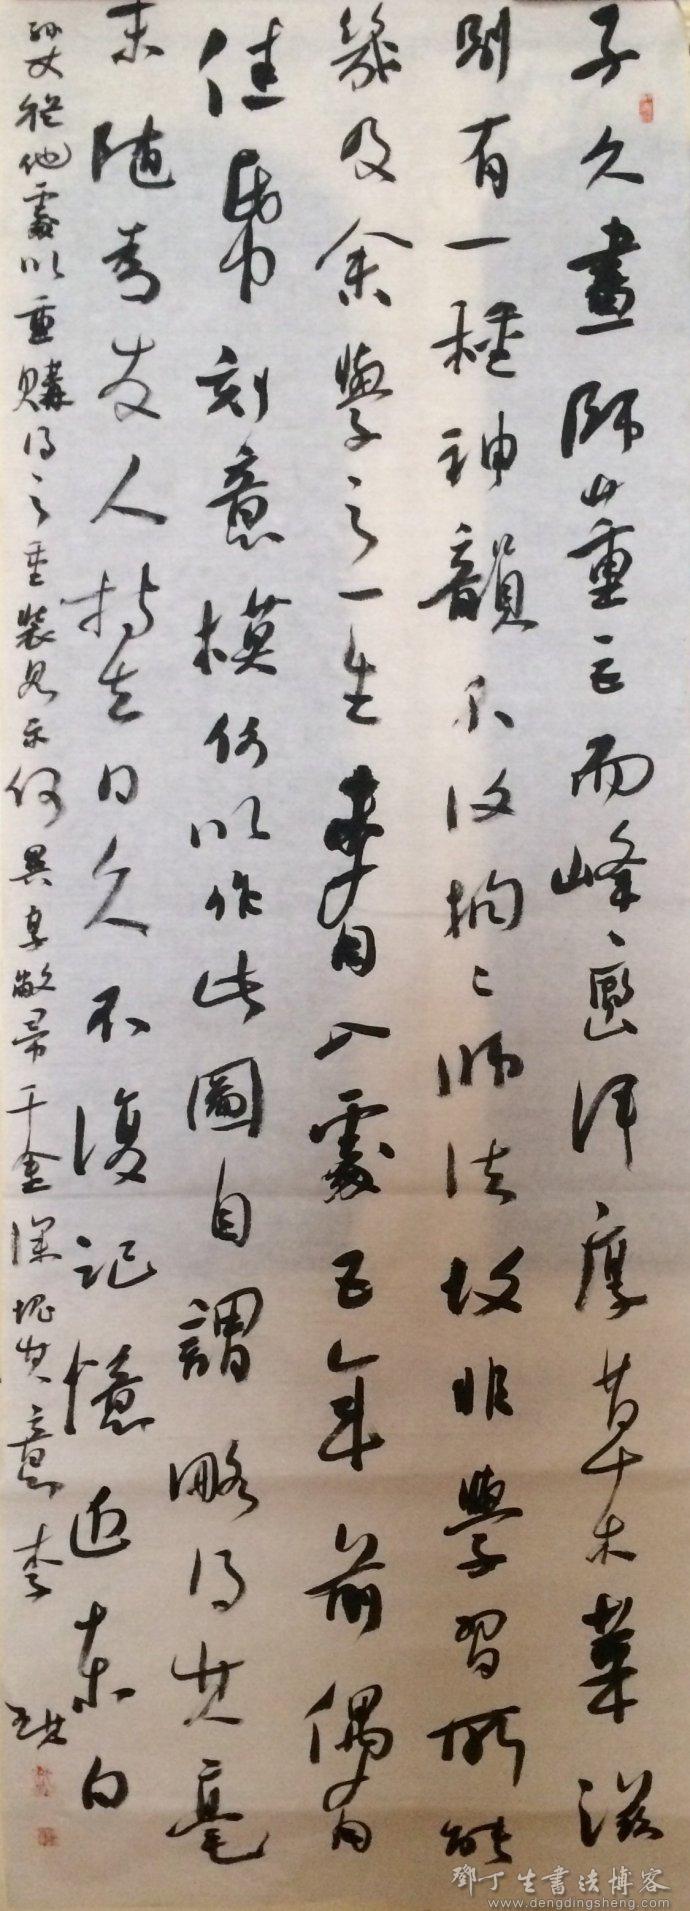 子久畫師董巨而峰巒渾厚草木華滋
別有一種神韻不復拘拘師法故非學習所能
幾及余學之一生未有入處五年前偶有
佳帋刻意模仿以作此圖自謂略得其毫
末隨有友人持去日久不復記憶近來白
從他處以重購得之重裝見示何異享敝帚千金深愧其意李
鄧丁生書法博客
www.dengdingsheng.com